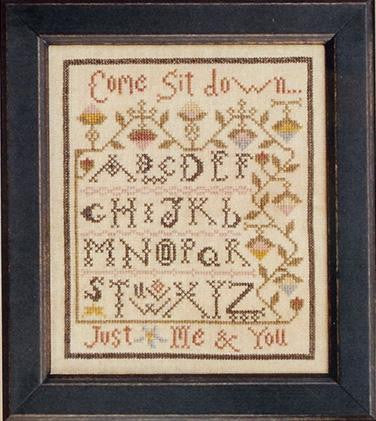 Come Sit down...
ABCDEF
GHIJKL
MNOPQR
STUVWXYZ
Just Me & You